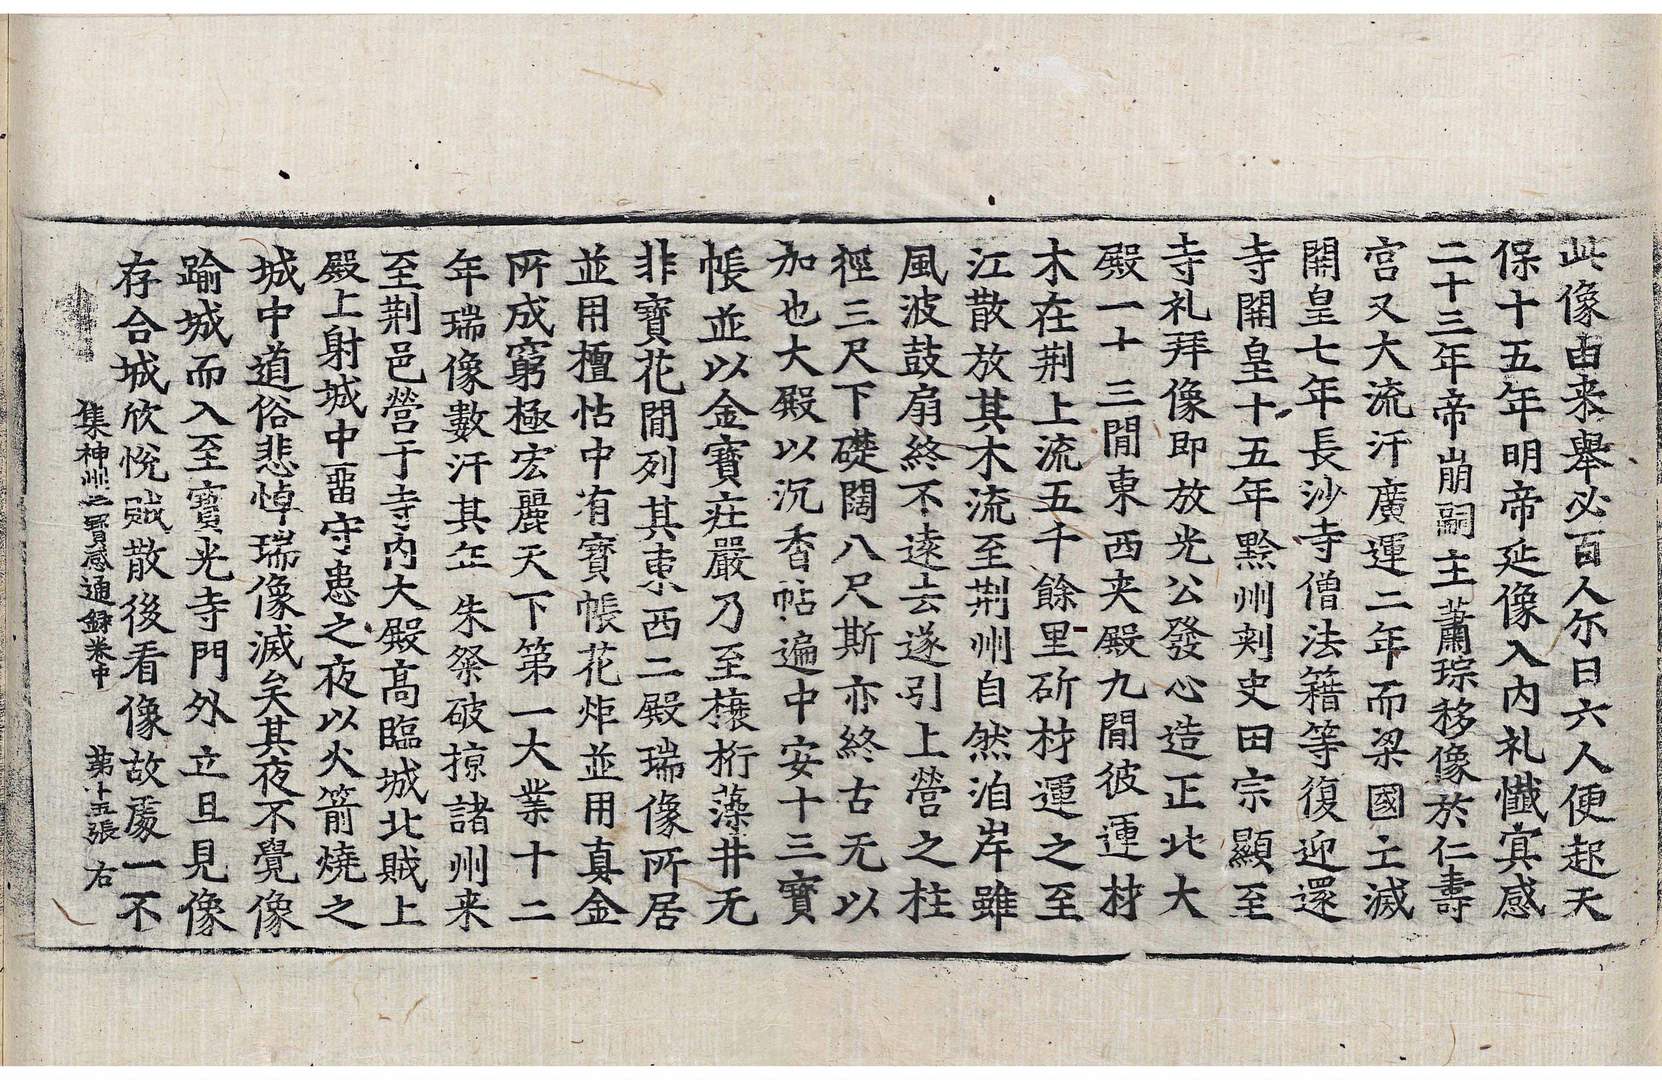 此像由来舉必百人尔日六人便起天
保十五年明帝延像入内礼懺冥感
二十三年帝崩嗣主蕭琮移像於仁壽
宫又大流汗廣運二年而梁國亡滅
開皇七年長沙寺僧法籍等復迎還
寺開皇十五年黔州刾史田宗顯至
寺礼拜像即放光公發心造正北大
殿一十三閒東西夾殿九閒彼運材
木在荆上流五千餘里斫材運之至
江散放其木流至荆州自然泊岸雖
風波鼓扇終不遠去遂引上營之柱
徑三尺下礎闊八尺斯亦終古无以
加也大殿以沉香帖遍中安十三寶
帳並以金寶莊嚴乃至榱桁藻井无
非寶花閒列其東西二殿瑞像所居
並用檀怗中有寶帳花炬並用真金
所成窮極宏麗天下第一大業十二
年瑞像數汗其年朱粲破掠諸州来
至荆邑營于寺内大殿髙臨城北賊上
殿上射城中畱守患之夜以火箭燒之
城中道俗悲悼瑞像滅矣其夜不覺像
踰城而入至寶光寺門外立且見像
存合城欣悅賊散後看像故處一不
集神州三寶感通録卷中 第十五張 右